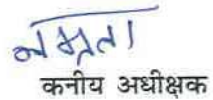 नम्रता
कनीय अधीक्षक